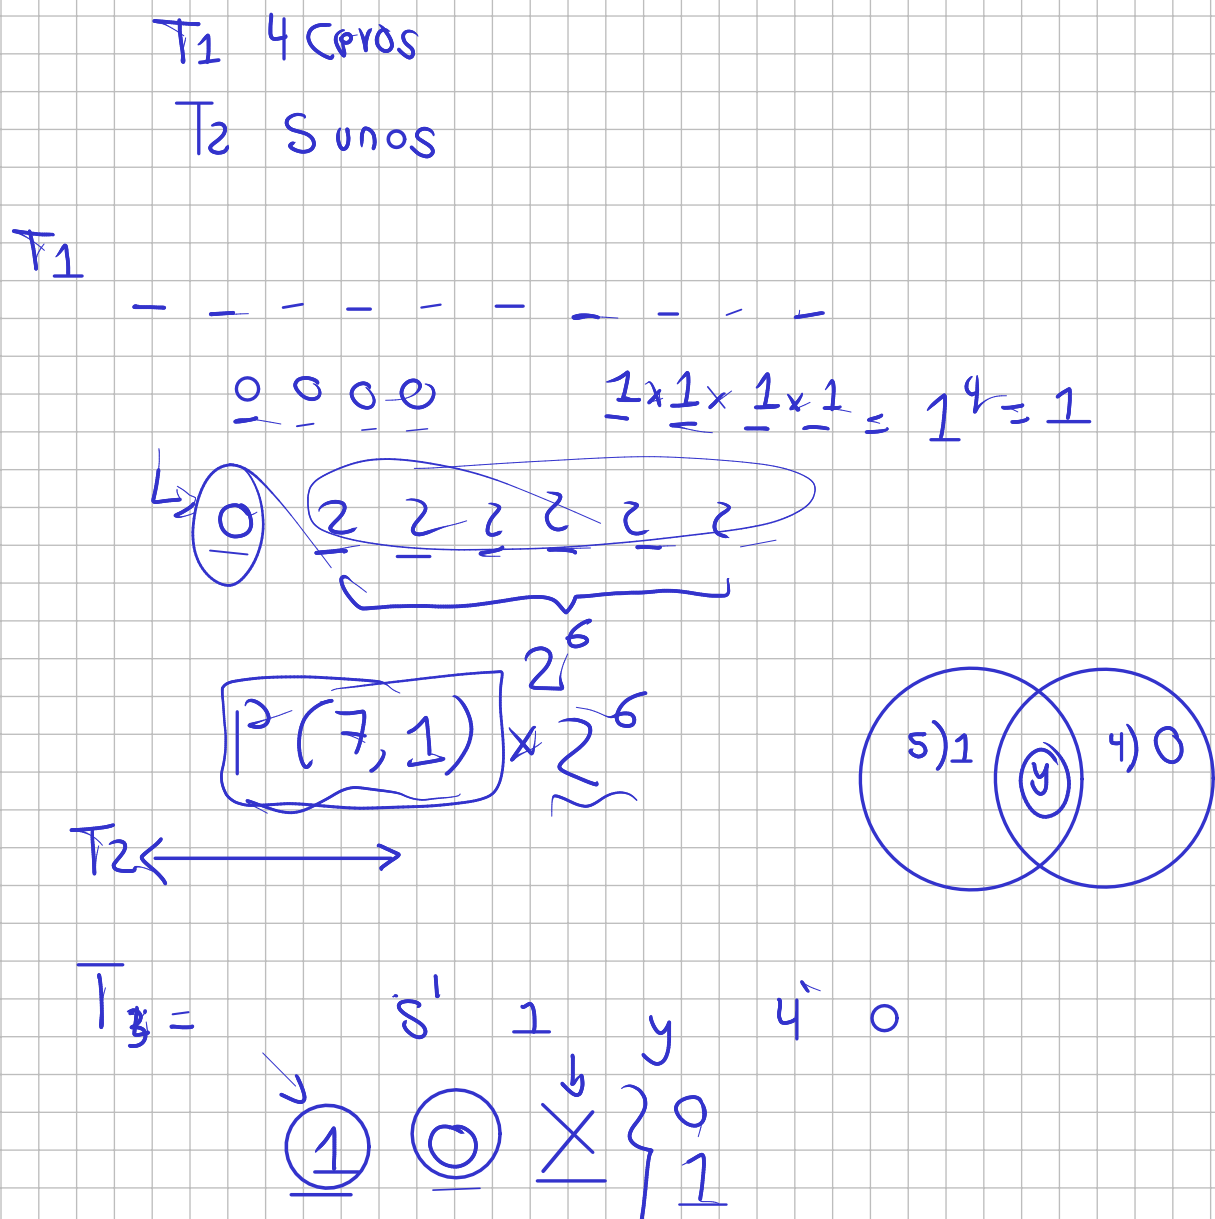 T1 4 Ceros
T2 5 unos
T1
_ _ _ _ _ _ _ _ _ _
0 0 0 0 1 x 1 x 1 x 1 = 1^4 = 1
0 2 2 2 2 2 2
2^6
P(7,1) x 2^6
5) 1 y 4) 0
T2
T3 = 5 1 y 4 0
1 0 X } 0
1